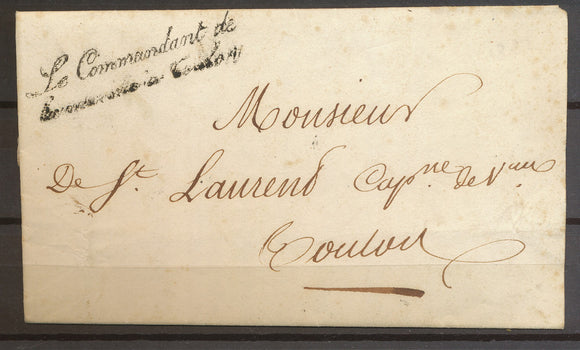 Le Commandant de
Toulon
Monsieur
De St. Laurend Capne. de Vau
Toulon